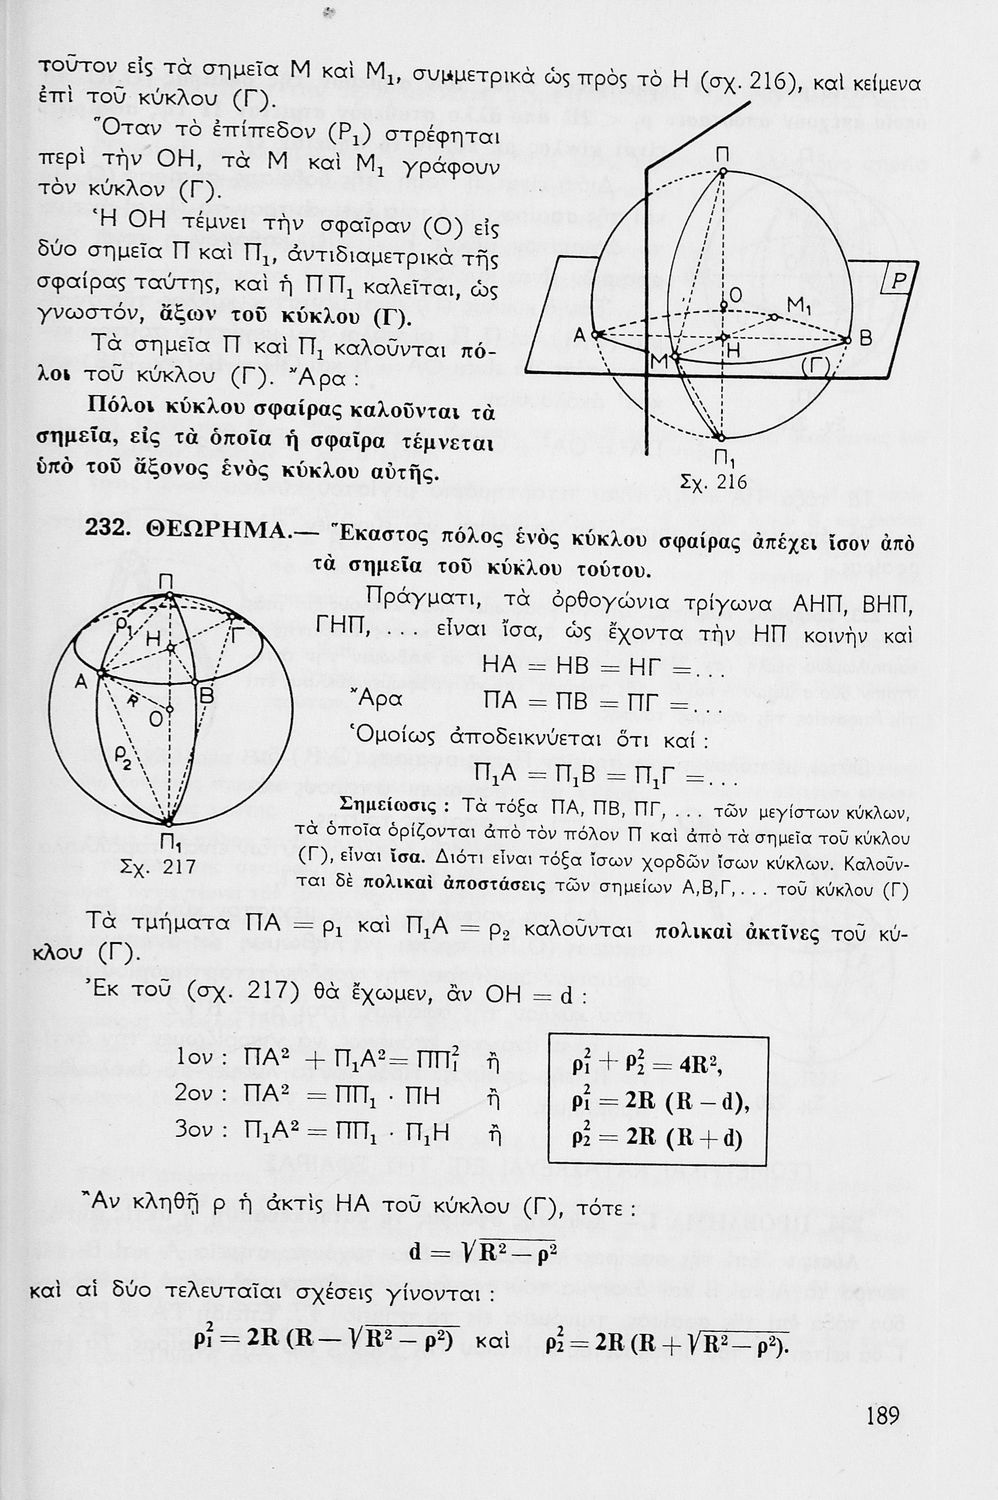 τοῦτον εἰς τὰ σημεῖα Μ καὶ Μ₁, συμμετρικὰ ὡς πρὸς τὸ Η (σχ. 216), καὶ κείμενα
ἐπὶ τοῦ κύκλου (Γ).
Ὅταν τὸ ἐπίπεδον (Ρ₁) στρέφηται
περὶ τὴν ΟΗ, τὰ Μ καὶ Μ₁ γράφουν
τὸν κύκλον (Γ).
Ἡ ΟΗ τέμνει τὴν σφαῖραν (Ο) εἰς
δύο σημεῖα Π καὶ Π₁, ἀντιδιαμετρικὰ τῆς
σφαίρας ταύτης, καὶ ἡ ΠΠ₁ καλεῖται, ὡς
γνωστόν, ἄξων τοῦ κύκλου (Γ).
Τὰ σημεῖα Π καὶ Π₁ καλοῦνται πό-
λοι τοῦ κύκλου (Γ). Ἄρα :
Πόλοι κύκλου σφαίρας καλοῦνται τὰ
σημεῖα, εἰς τὰ ὁποῖα ἡ σφαῖρα τέμνεται
ὑπὸ τοῦ ἄξονος ἑνὸς κύκλου αὐτῆς.
Π
Ρ
Ο
Μ₁
Α
Β
Μ
Η
(Γ)
Π₁
Σχ. 216
232. ΘΕΩΡΗΜΑ.— Ἕκαστος πόλος ἑνὸς κύκλου σφαίρας ἀπέχει ἴσον ἀπὸ
τὰ σημεῖα τοῦ κύκλου τούτου.
Π
ρ₁
Η
Γ
Α
Β
R
Ο
ρ₂
Π₁
Σχ. 217
Πράγματι, τὰ ὀρθογώνια τρίγωνα ΑΗΠ, ΒΗΠ,
ΓΗΠ, ... εἶναι ἴσα, ὡς ἔχοντα τὴν ΗΠ κοινὴν καὶ
ΗΑ = ΗΒ = ΗΓ =...
Ἄρα ΠΑ = ΠΒ = ΠΓ =...
Ὁμοίως ἀποδεικνύεται ὅτι καί :
Π₁Α = Π₁Β = Π₁Γ =...
Σημείωσις : Τὰ τόξα ΠΑ, ΠΒ, ΠΓ, ... τῶν μεγίστων κύκλων,
τὰ ὁποῖα ὁρίζονται ἀπὸ τὸν πόλον Π καὶ ἀπὸ τὰ σημεῖα τοῦ κύκλου
(Γ), εἶναι ἴσα. Διότι εἶναι τόξα ἴσων χορδῶν ἴσων κύκλων. Καλοῦν-
ται δὲ πολικαὶ ἀποστάσεις τῶν σημείων Α,Β,Γ,... τοῦ κύκλου (Γ)
Τὰ τμήματα ΠΑ = ρ₁ καὶ Π₁Α = ρ₂ καλοῦνται πολικαὶ ἀκτῖνες τοῦ κύ-
κλου (Γ).
Ἐκ τοῦ (σχ. 217) θὰ ἔχωμεν, ἂν ΟΗ = d :
1ον : ΠΑ² + Π₁Α² = ΠΠ₁² ἢ ρ₁² + ρ₂² = 4R²,
2ον : ΠΑ² = ΠΠ₁ · ΠΗ ἢ ρ₁² = 2R (R – d),
3ον : Π₁Α² = ΠΠ₁ · Π₁Η ἢ ρ₂² = 2R (R + d)
Ἂν κληθῇ ρ ἡ ἀκτὶς ΗΑ τοῦ κύκλου (Γ), τότε :
d = √R² – ρ²
καὶ αἱ δύο τελευταῖαι σχέσεις γίνονται :
ρ₁² = 2R (R – √R² – ρ²) καὶ ρ₂² = 2R (R + √R² – ρ²).
189